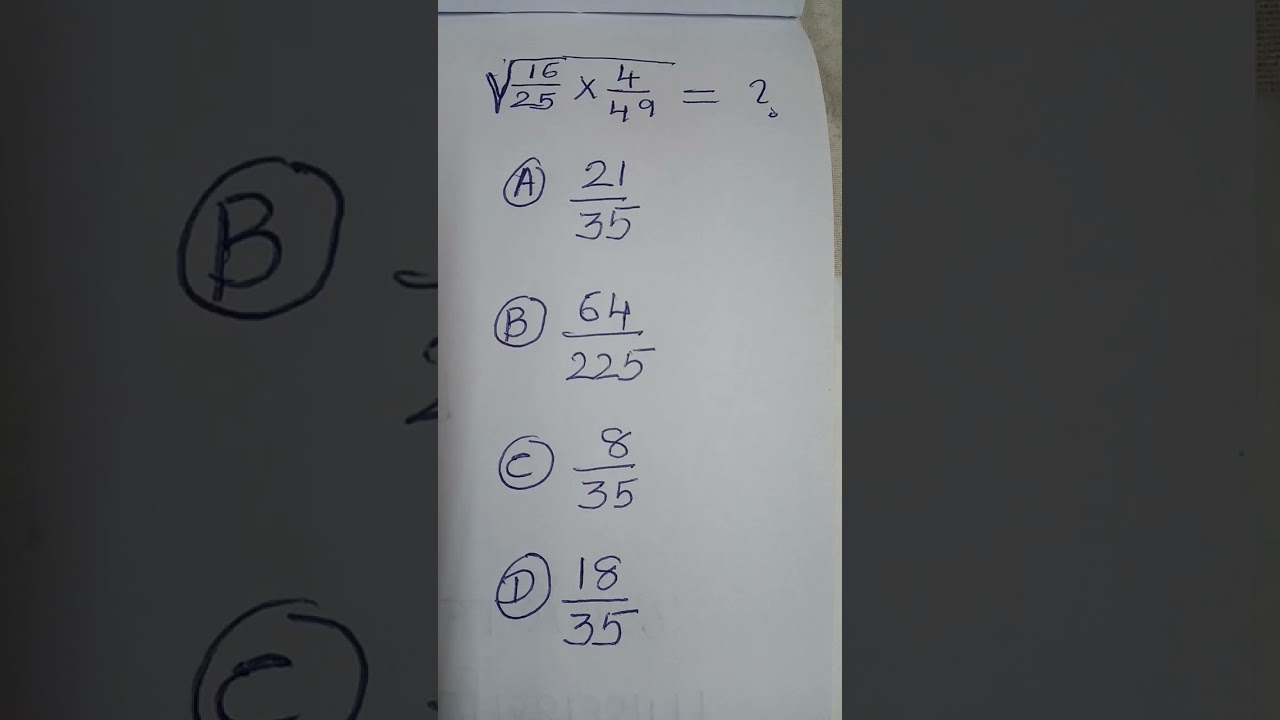 √(16/25 × 4/49) = ?
Ⓐ 21/35
Ⓑ 64/225
Ⓒ 8/35
Ⓓ 18/35